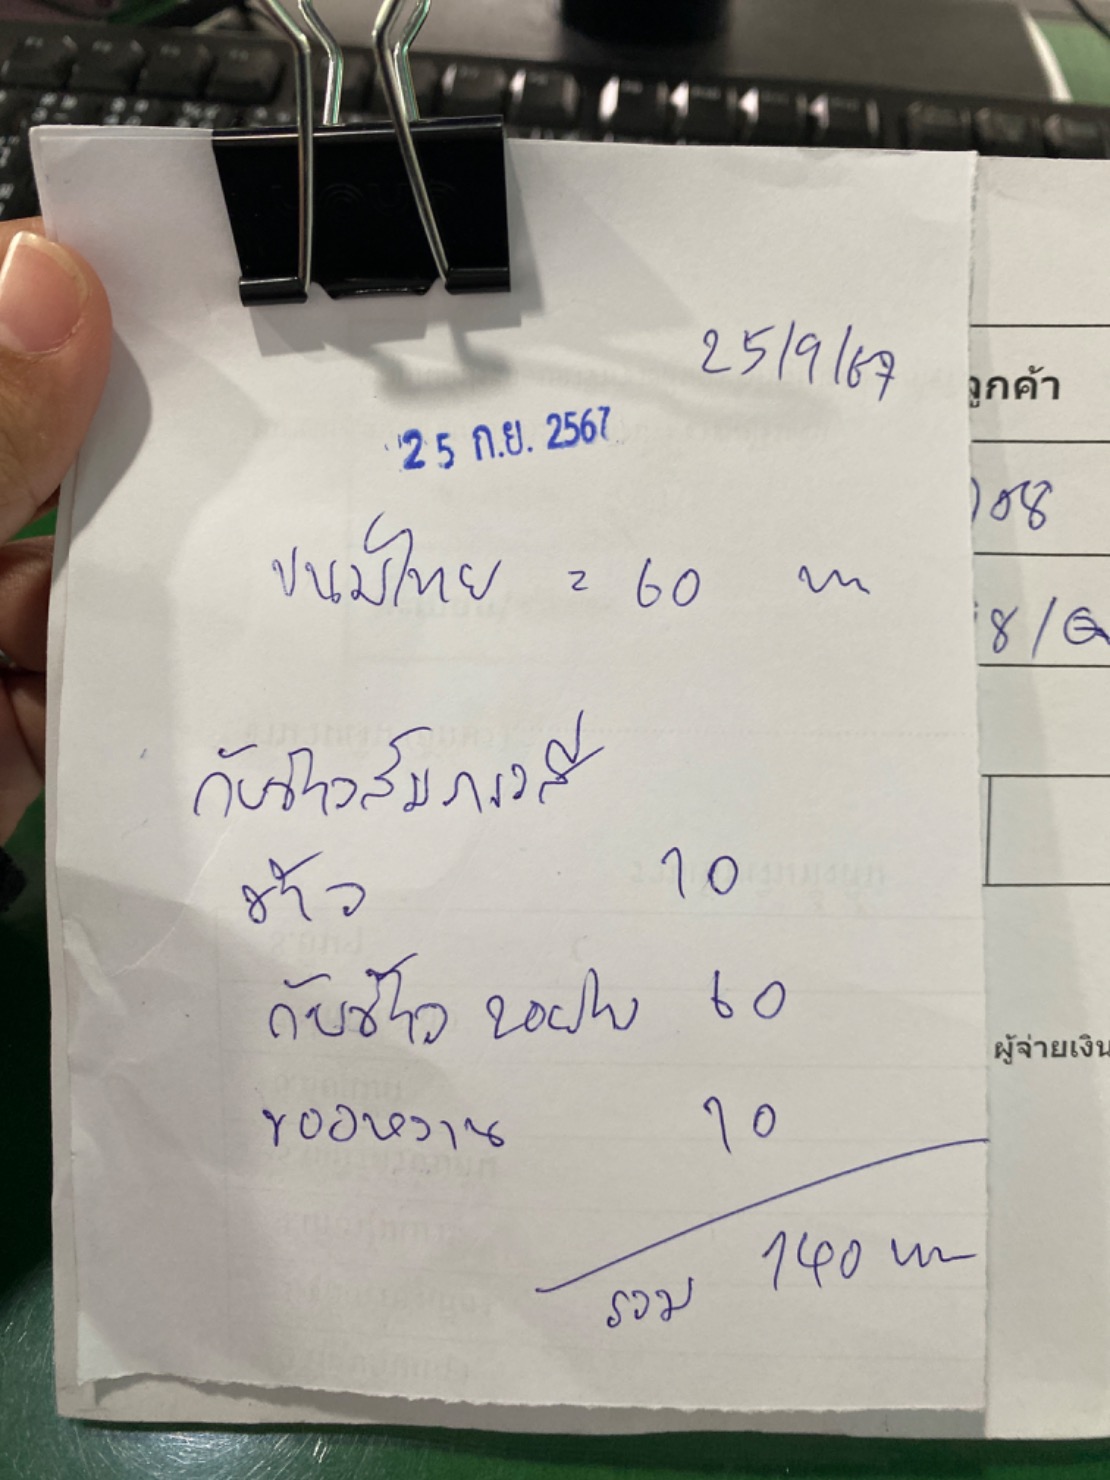 25/9/67
ลูกค้า
25 ก.ย. 2567
08
ขนมไทย = 60 บาท
8/
กับข้าวสัมภาร
ข้าว 10
กับข้าว 60
ผู้จ่ายเงิน
ของหวาน 10
รวม 140 บาท